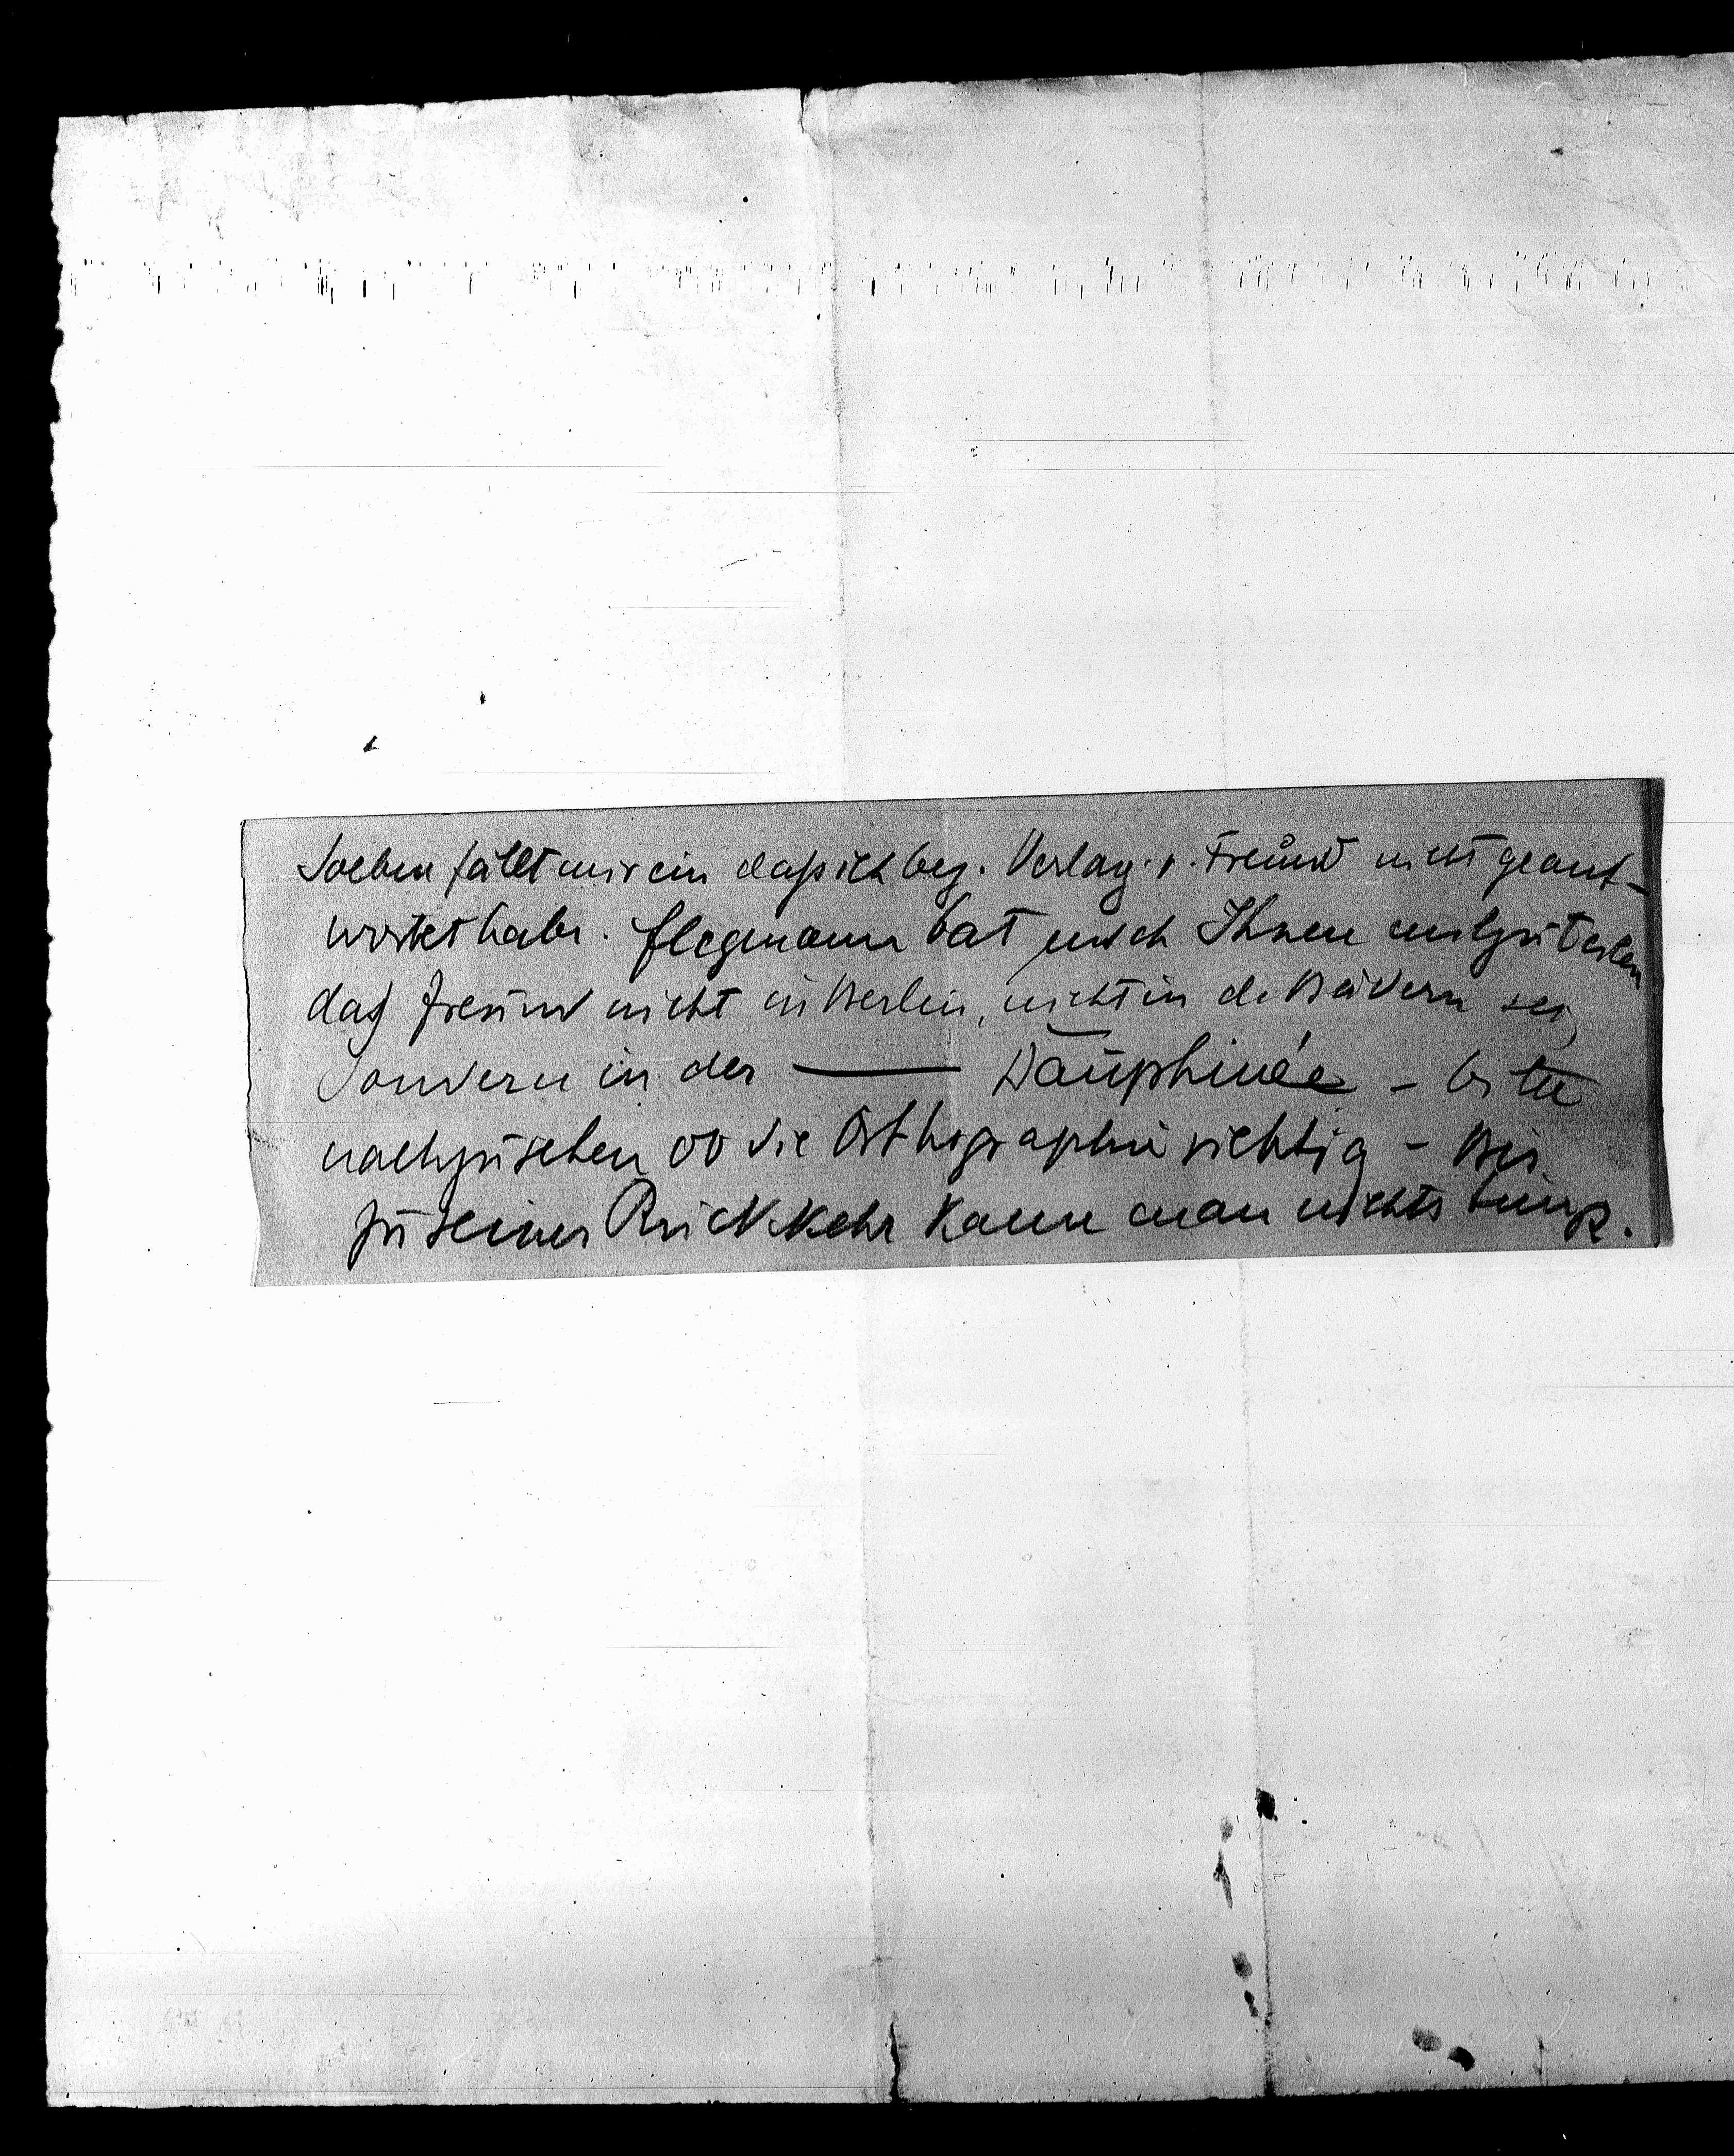 Soeben fällt mir ein dass ich bez. Verlag v. Freund nicht geant-
wortet habe. Flegmann bat mich Ihnen mitzuteilen
daß Freund nicht in Berlin, nicht in d. Bädern sei,
Sondern in der ——— Dauphinée – bitte
nachzusehen ob die Orthographie richtig – Bis
zu seiner Rückkehr kann man nichts